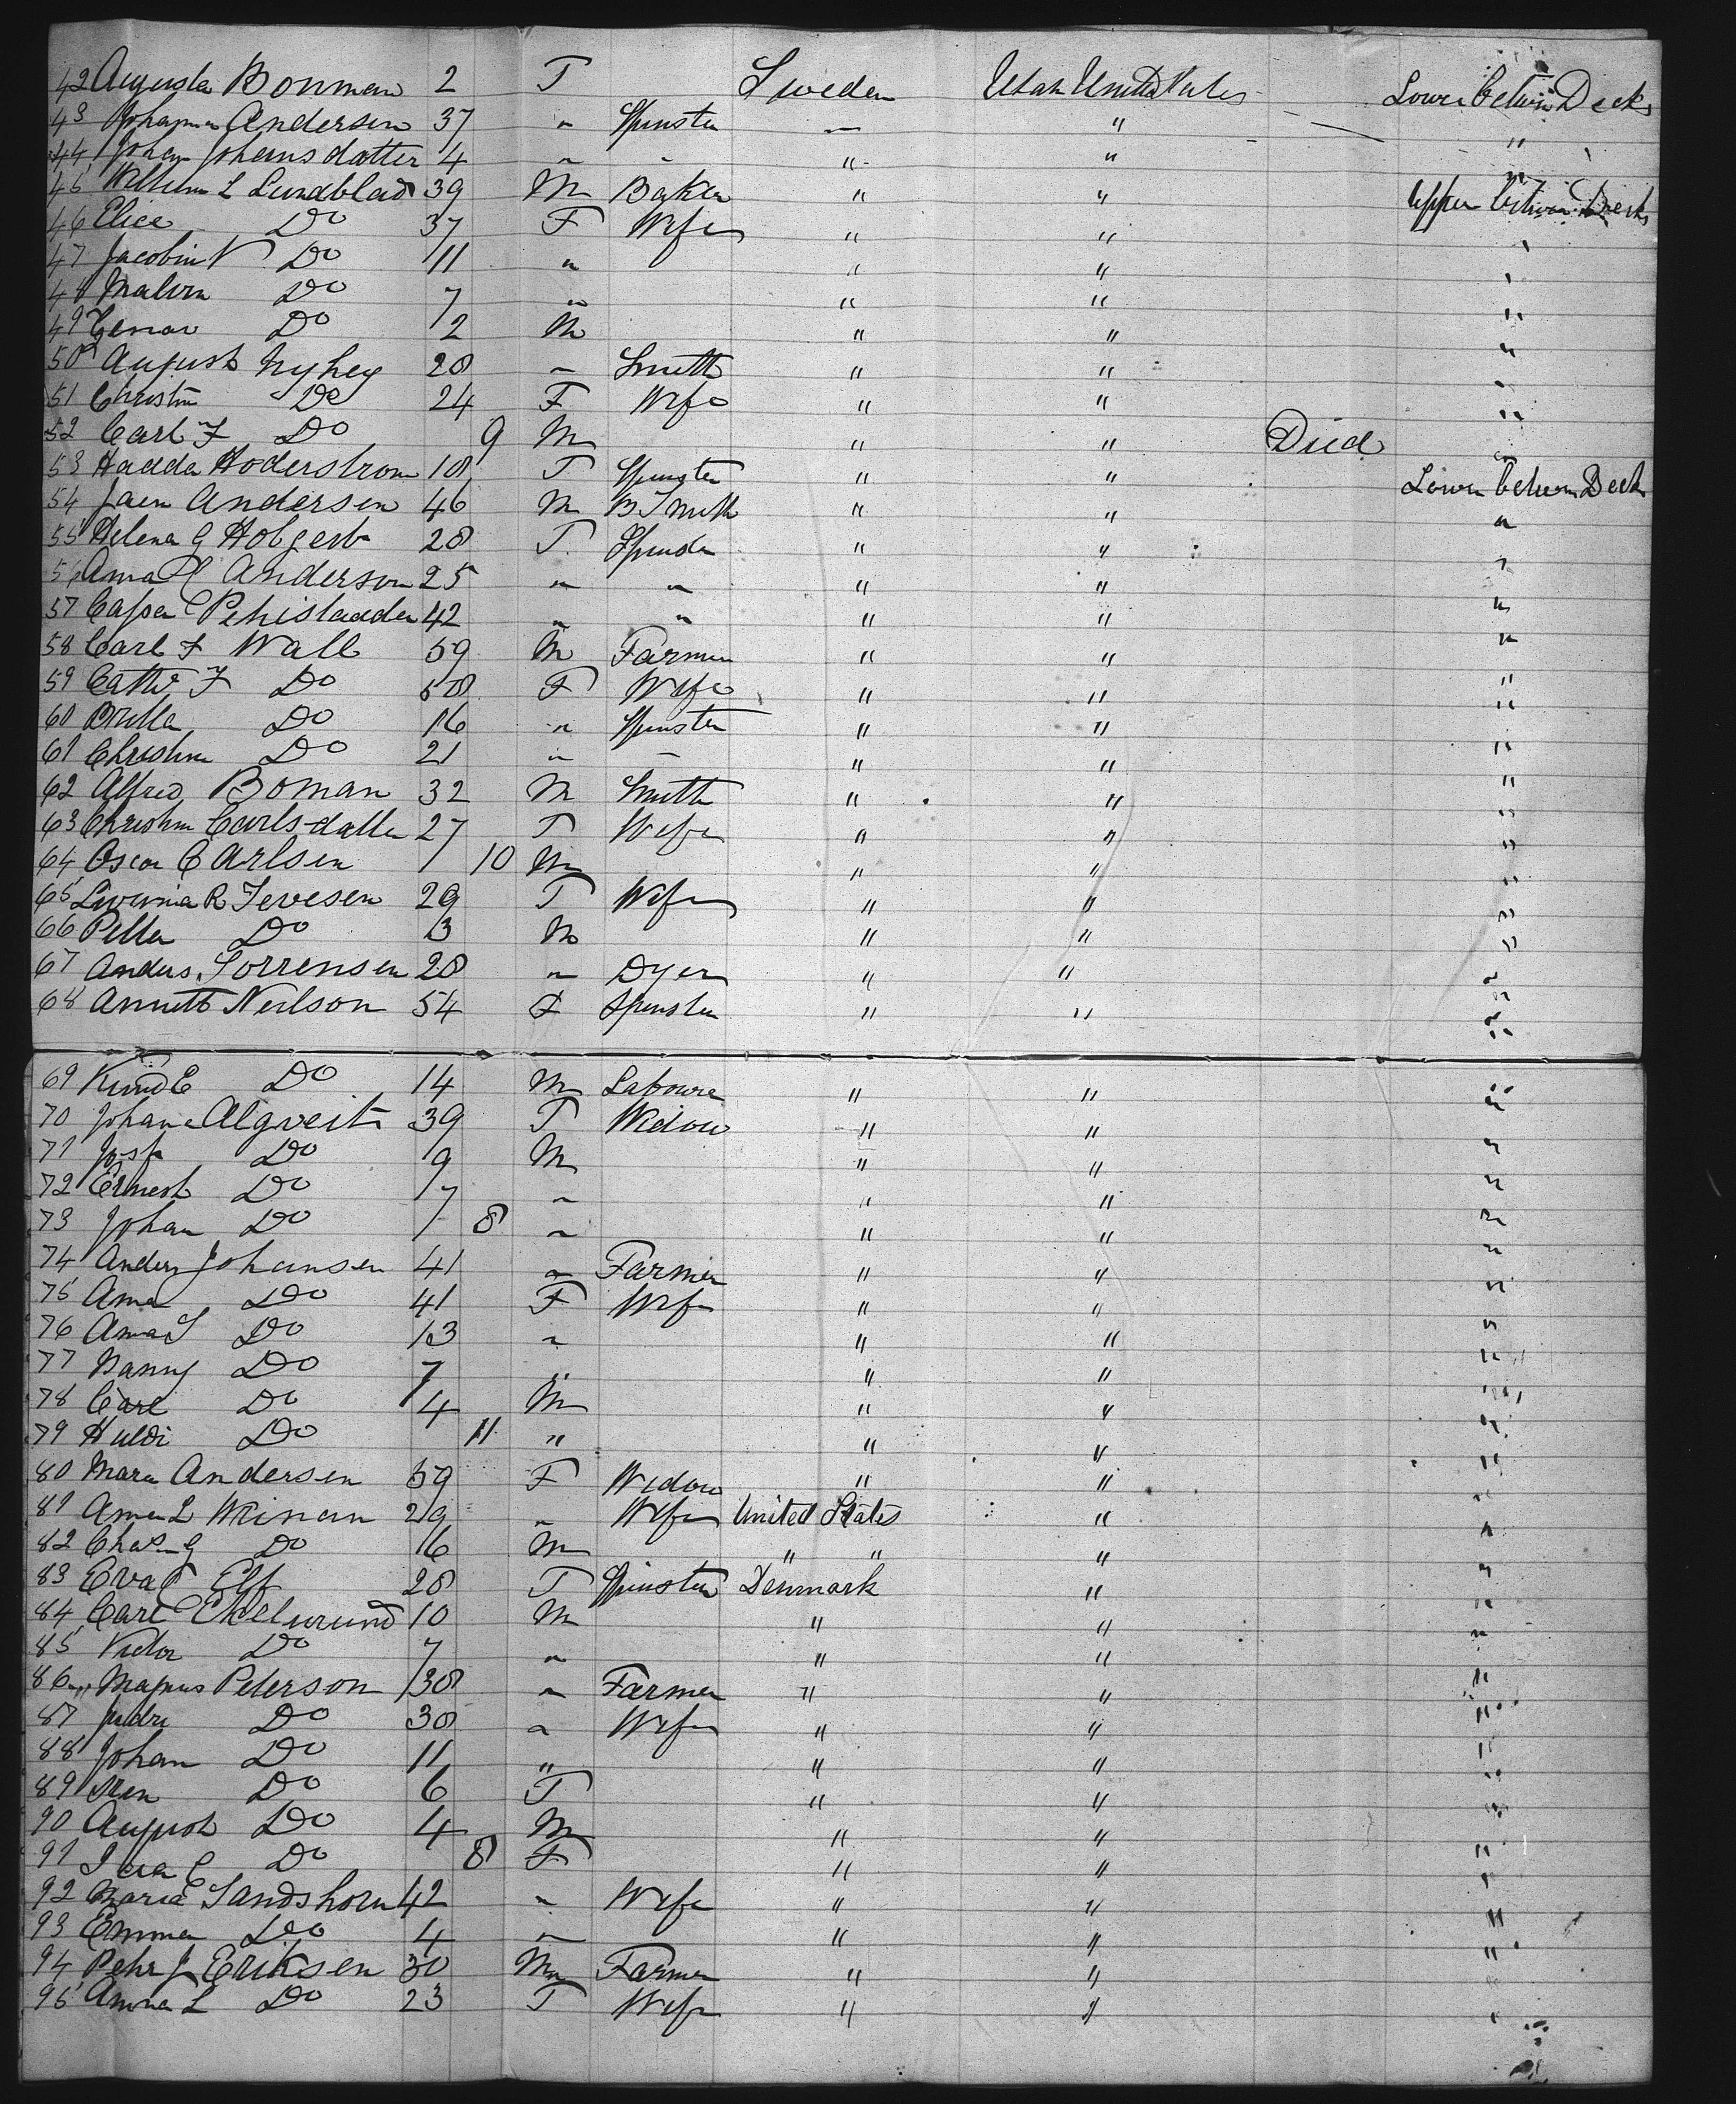 42 Augusta Bonman 2 F Sweden Utah United States Lower between Decks
43 Johanna Andersen 37 " Spinster " " "
44 Johan Johansdatter 4 " " " " "
45 Wilhem L Lundblad 39 M Baker " " Upper between Decks
46 Elice Do 37 F Wife " " "
47 Jacobin V Do 11 " " " "
48 Malvin Do 7 " " " "
49 Do 2 M " " "
50 August Nyhey 28 " Smith " " "
51 Christin Do 24 F Wife " " "
52 Carl F Do 9 M " " Died "
53 Hadda Hoderstrom 18 F Spinster " " Lower between Deck
54 Andersen 46 M B Smith " " "
55 Helena G 28 F Spinster " " "
56 Anna C Anderson 25 " " " " "
57 42 " " " " "
58 Carl F Wall 59 M Farmer " " "
59 Cath F Do 58 F Wife " " "
60 Brilla Do 16 " Spinster " " "
61 Christin Do 21 " " " " "
62 Alfred Boman 32 M Smith " " "
63 Christin Carlsdatter 27 F Wife " " "
64 Oscar Carlsen 1 10 M " " "
65 R Tevesen 29 F Wife " " "
66 Pella Do 3 M " " "
67 Anders Sorrensen 28 " Dyer " " "
68 Annett Neilson 54 F Spinster " " "
69 Knud E Do 14 M Laboure " " "
70 Johana Algveit 39 F Widow " " "
71 Do 9 M " " "
72 Ernest Do 7 " " " "
73 Johan Do 1 8 " " " "
74 Anders Johansen 41 " Farmer " " "
75 Anna Do 41 F Wife " " "
76 Anna S Do 13 " " " "
77 Nanny Do 7 " " " "
78 Carl Do 4 M " " "
79 Huldi Do 11 " " " "
80 Mara Andersen 59 F Widow " " "
81 Anna L 29 " Wife United States " "
82 Do 16 M " " " "
83 Eva C Elf 28 F Spinster Denmark " "
84 Carl 10 M " " "
85 Victor Do 7 " " " "
86 Magnus Peterson 38 " Farmer " " "
87 Do 38 " Wife " " "
88 Johan Do 11 " " " "
89 Do 6 F " " "
90 August Do 4 M " " "
91 Do 8 F " " "
92 Maria Sandshorn 42 " Wife " " "
93 Emma Do 4 " " " "
94 Pehr J Eriksen 30 M Farmer " " "
95 Anna L Do 23 F Wife " " "